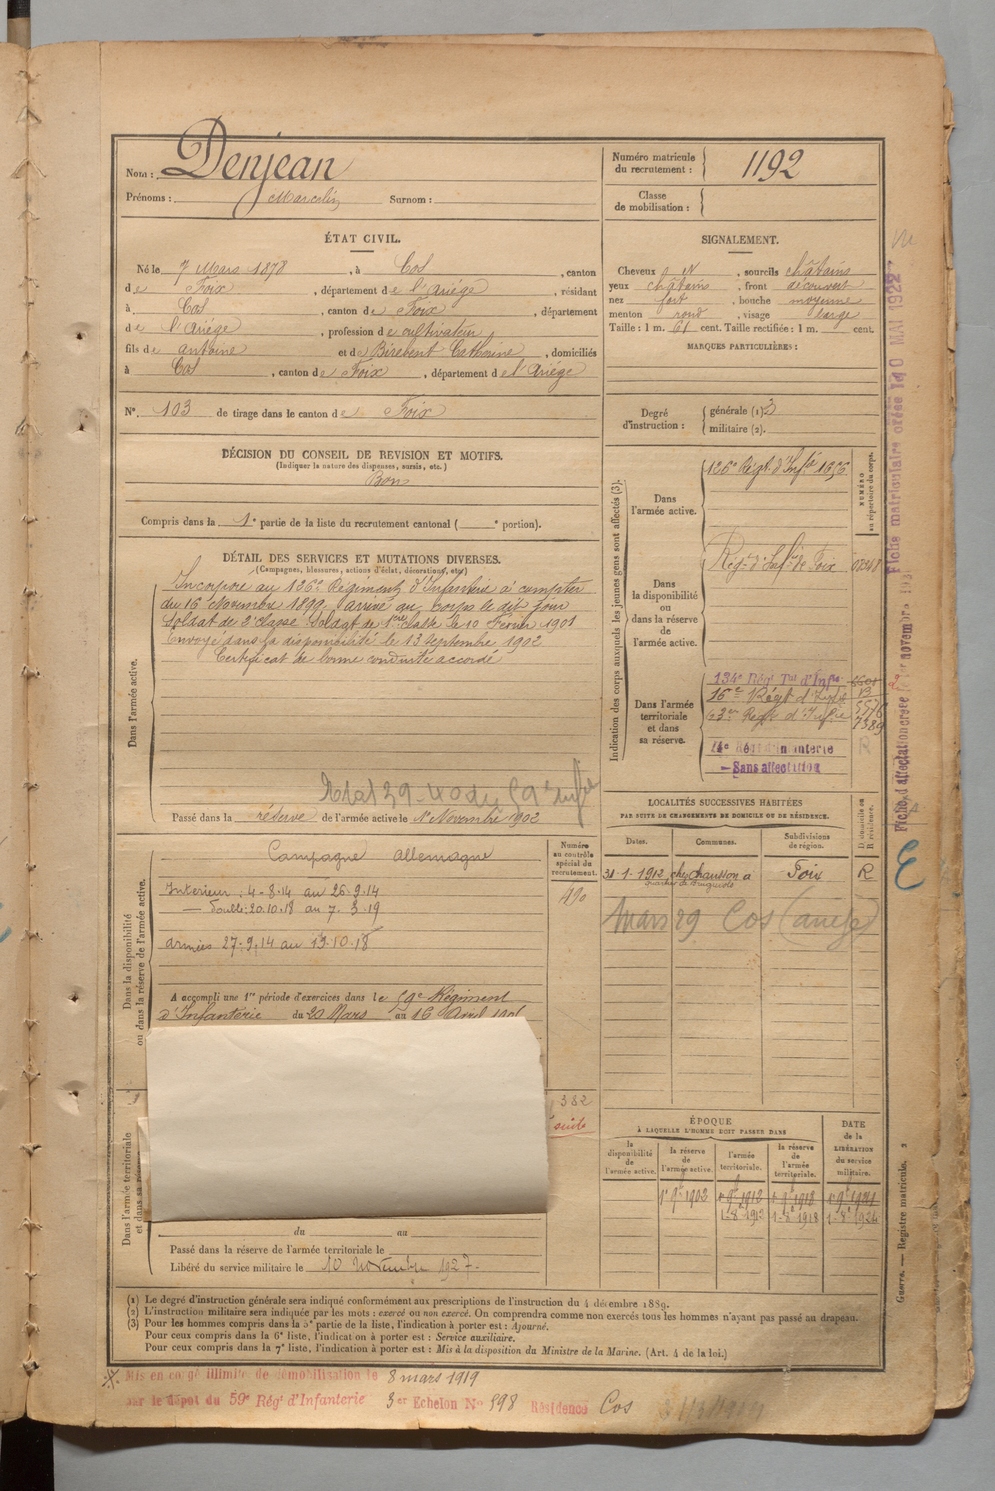 Nom : Denjean
Prénoms : Marcelin Surnom :
Numéro matricule
du recrutement : 1192
Classe
de mobilisation :
ÉTAT CIVIL.
Né le 7 Mars 1878, à Cos, canton
de Foix, département de l'Ariége, résidant
à Cos, canton de Foix, département
de l'Ariége, profession de cultivateur,
fils de antoine et de Birebent Catherine, domiciliés
à Cos, canton de Foix, département de l'Ariége
N° 103 de tirage dans le canton de Foix
SIGNALEMENT.
Cheveux , sourcils châtains
yeux châtains, front découvert
nez fort, bouche moyenne
menton rond, visage large
Taille : 1 m. 61 cent. Taille rectifiée : 1 m. cent.
MARQUES PARTICULIÈRES :
Degré
d'instruction :
générale (1) 3
militaire (2).
DÉCISION DU CONSEIL DE REVISION ET MOTIFS.
(Indiquer la nature des dispenses, sursis, etc.)
Bon
Compris dans la 1e partie de la liste du recrutement cantonal ( e portion).
DÉTAIL DES SERVICES ET MUTATIONS DIVERSES.
(Campagnes, blessures, actions d'éclat, décorations, etc.)
Dans l'armée active.
Incorporé au 126e Régiment d'Infanterie à compter
du 16 Novembre 1899, arrivé au corps le dit jour
Soldat de 2e classe. Soldat de 1ère classe le 10 Février 1901
Envoyé dans la disponibilité le 13 Septembre 1902
Certificat de bonne conduite accordé
59e
Passé dans la réserve de l'armée active le 1er Novembre 1902
Dans la disponibilité
ou dans la réserve de l'armée active.
Campagne allemagne
Interieur : 4-8-14 au 26-9-14
— Double: 20.10.18 au 7.3.19
armées 27-9-14 au 19-10-18
A accompli une 1re période d'exercices dans le 59e Régiment
d'Infanterie du 20 Mars au 16 Avril
Numéro
au contrôle
spécial du
recrutement.
490
382
suite
Dans l'armée territoriale
et dans sa
du au
Passé dans la réserve de l'armée territoriale le
Libéré du service militaire le 10 Novembre 1927-
Indication des corps auxquels les jeunes gens sont affectés (3).
NUMÉRO
au répertoire du corps.
Dans
l'armée active.
126e Régt d'Infie
Dans
la disponibilité
ou dans
la réserve de
l'armée active.
Régt d'Infie de Foix
Dans l'armée
territoriale
et dans
sa réserve.
134e Régt Tal d'Infie
16e Régt d'Infie
Régt d'Infie
7389
Régt d'Infanterie
R
— Sans affectation
LOCALITÉS SUCCESSIVES HABITÉES
PAR SUITE DE CHANGEMENTS DE DOMICILE OU DE RÉSIDENCE.
Dates. Communes. Subdivisions
de région.
D domicile ou
R résidence.
31-1-1912 chez chausson à Foix R
Mars 29 Cos (ariège)
ÉPOQUE
À LAQUELLE L'HOMME DOIT PASSER DANS
la
disponibilité
de
l'armée active.
la réserve
de
l'armée active.
l'armée
territoriale.
la réserve
de
l'armée
territoriale.
DATE
de la
LIBÉRATION
du service
militaire.
1er 9bre 1902 1er 9bre 1912 1er 9bre 1918 1er 9bre 1924
1-8e 1912 1-8e 1918 1-8e 1924
(1) Le degré d'instruction générale sera indiqué conformément aux prescriptions de l'instruction du 4 décembre 1889.
(2) L'instruction militaire sera indiquée par les mots : exercé ou non exercé. On comprendra comme non exercés tous les hommes n'ayant pas passé au drapeau.
(3) Pour les hommes compris dans la 5e partie de la liste, l'indication à porter est : Ajourné.
Pour ceux compris dans la 6e liste, l'indication à porter est : Service auxiliaire.
Pour ceux compris dans la 7e liste, l'indication à porter est : Mis à la disposition du Ministre de la Marine. (Art. 4 de la loi.)
Mis en congé illimité de démobilisation le 8 mars 1919
par le dépôt du 59e Régt d'Infanterie 3er Echelon N° 598 Résidence Cos
Fiche matriculaire créée le 10 MAI 1922
Fiche d'affectation créée
E
Guerre. — Registre matricule. 2